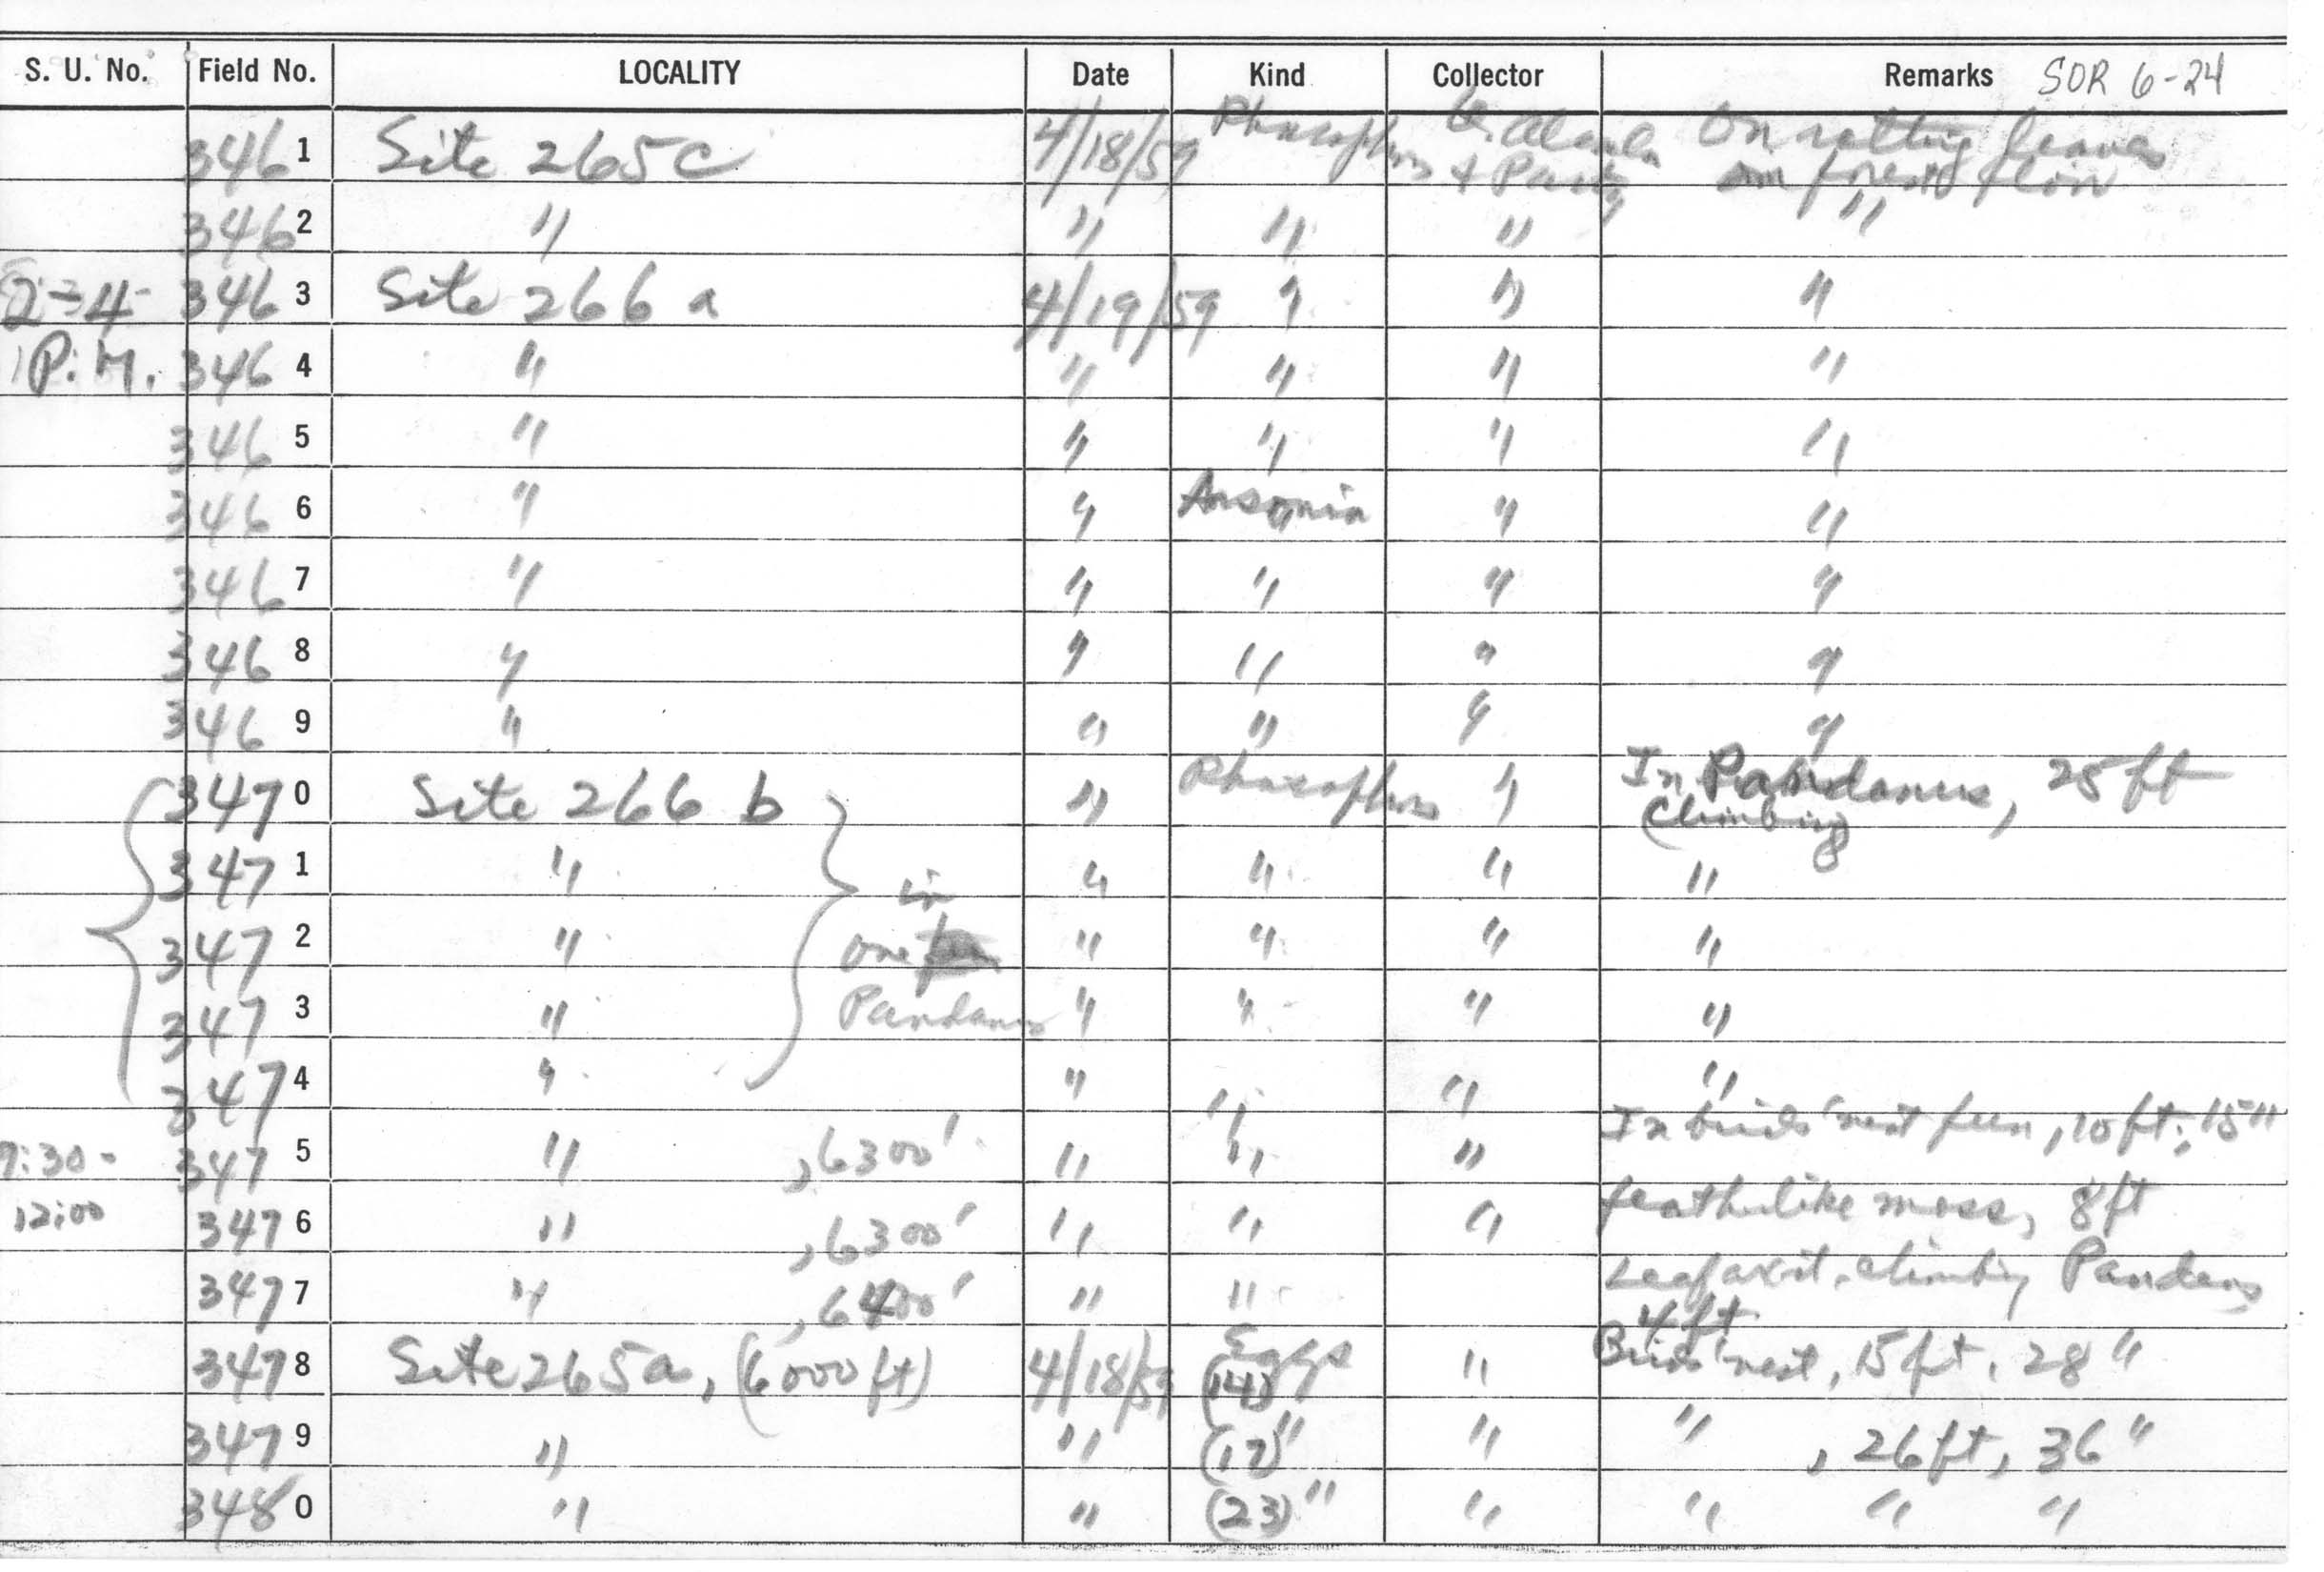 S. U. No. Field No. LOCALITY Date Kind Collector Remarks SOR 6-24
3461 Site 265c 4/18/59 Rhacophorus Q. Alcala & Party On rotting leaves on forest floor
3462 " " " " "
2-4 3463 Site 266 a 4/19/59 " " "
P.M. 3464 " " " " "
3465 " " " " "
3466 " " Ansonia " "
3467 " " " " "
3468 " " " " "
3469 " " " " "
3470 Site 266 b " Rhacophorus " In Pandanus, 25 ft
(Climbing)
3471 " " " " "
in
3472 " one " " " "
3473 " Pandanus " " " "
3474 " " " " "
9:30- 3475 " , 6300' " " " In birds' nest fern, 10 ft; 15"
12:00 3476 " , 6300' " " " featherlike moss, 8 ft
3477 " , 6400' " " Leaf axil, climbing Pandanus
4 ft
3478 Site 265a, (6000 ft) 4/18/59 Eggs (14) " Birds' nest, 15 ft, 28"
3479 " " (17) " " " , 26 ft, 36"
3480 " " (23) " " " " "